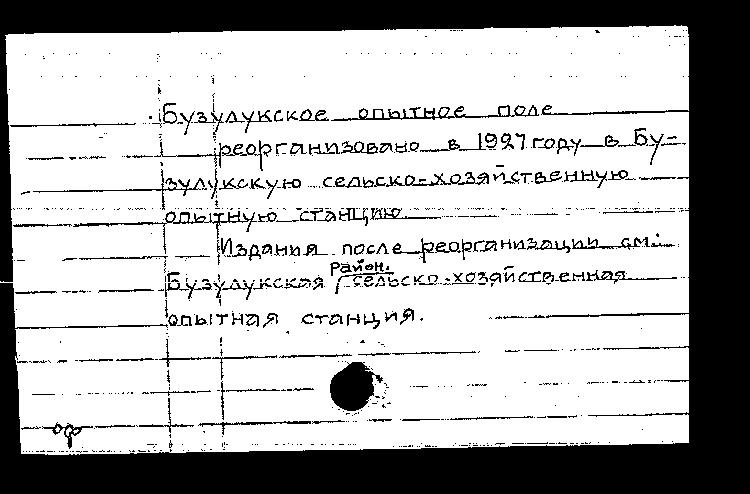 Бузулукское опытное поле
реорганизовано в 1927 году в Бу-
зулукскую сельско-хозяйственную
опытную станцию.
Издания после реорганизации см.:
район.
Бузулукская сельско-хозяйственная
опытная станция.
оф